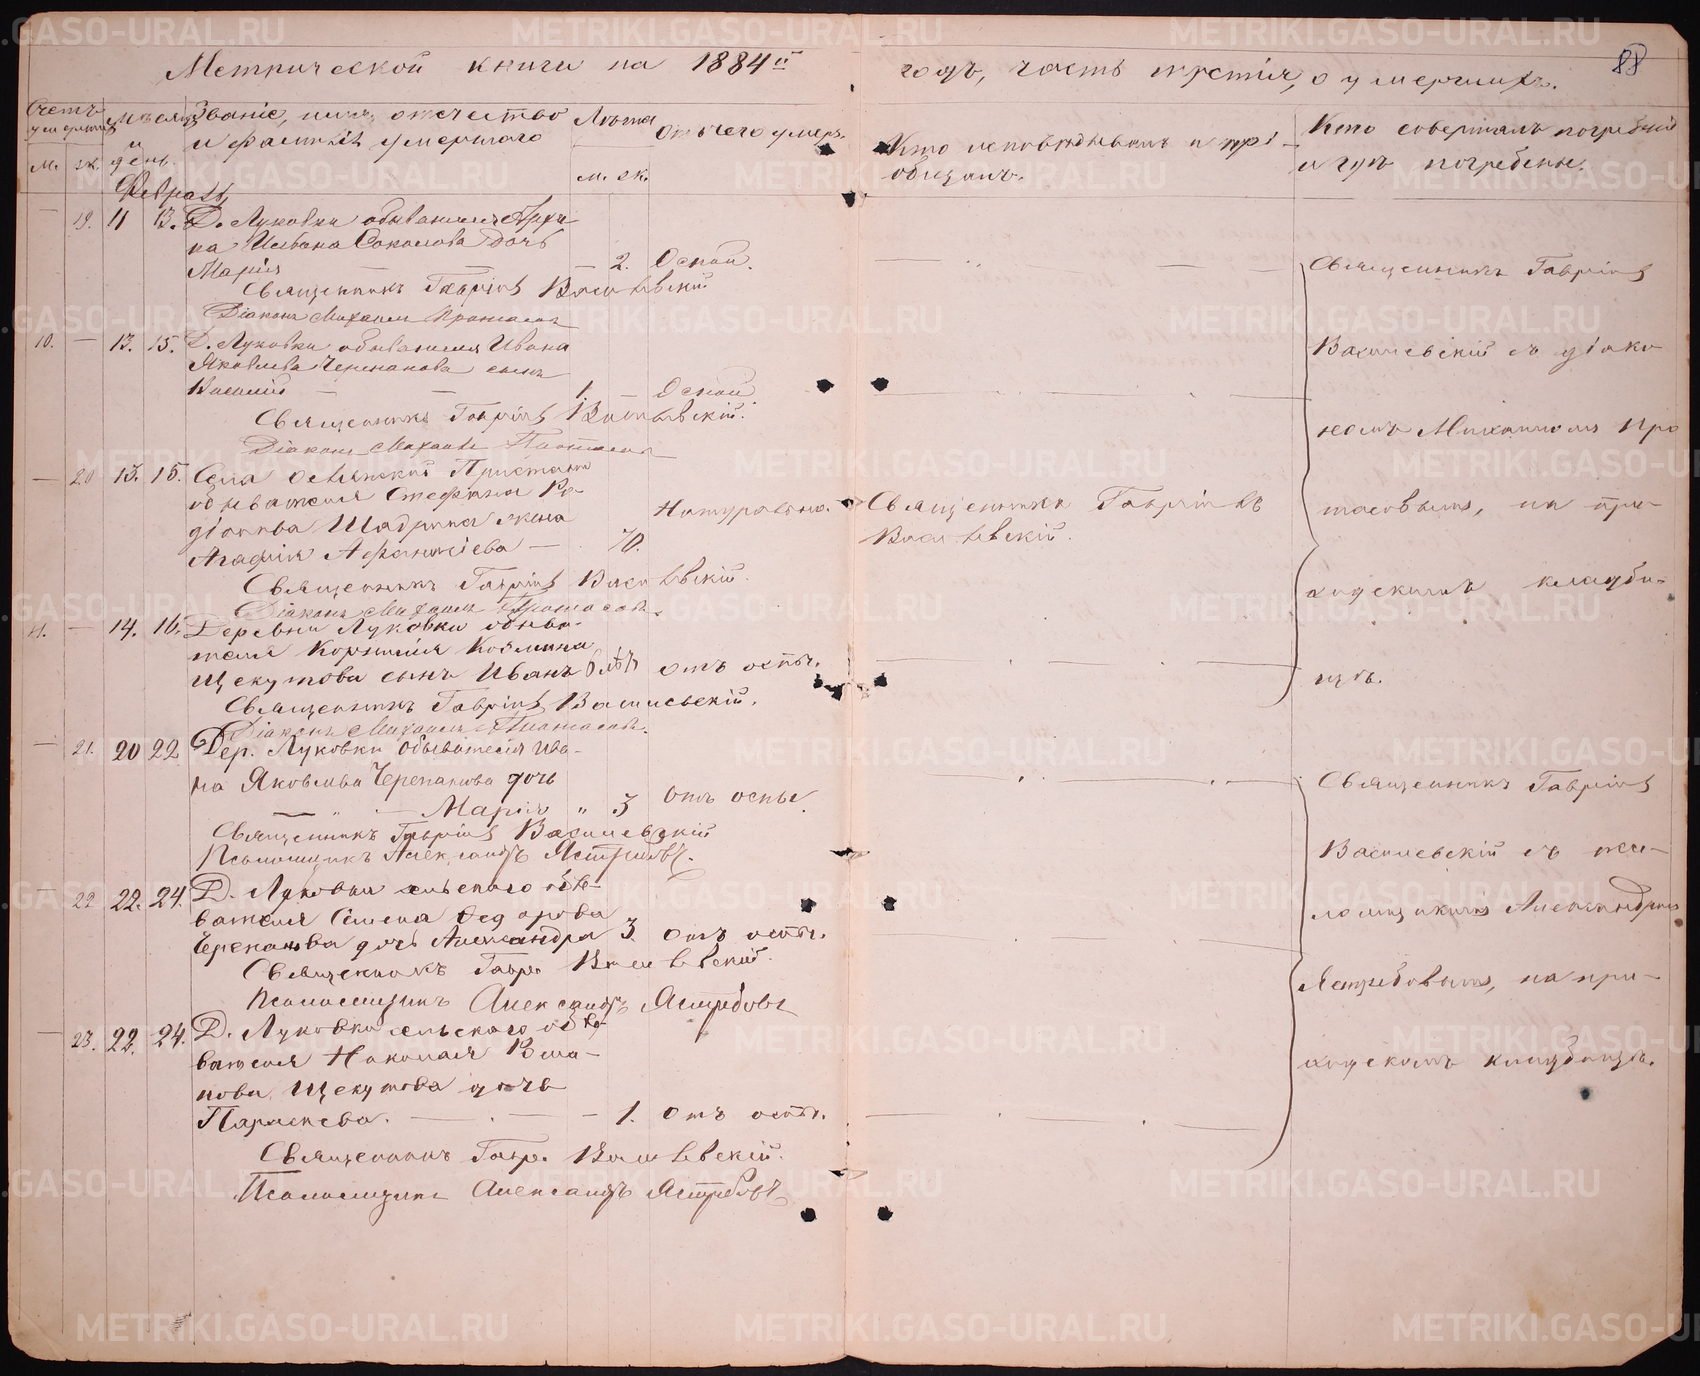 Метрической книги на 1884й
годъ, часть третія, о умершихъ.
88
Счетъ умершихъ
Мѣсяцъ и день
Званіе, имя, отчество
и фамилія умершаго
Лѣта
Отъ чего умеръ
Кто исповѣдывалъ и прі-
общалъ.
Кто совершалъ погребеніе
и гдѣ погребены.
м. ж.
м. ж.
Февраль
19. 11 13. Д. Луковки обывателя Архи
па Иванова Соколова дочь
Марія — 2. Оспой.
Священникъ Гавріилъ Василевскій
Діаконъ Михаилъ Протасовъ
10. — 13. 15. Д. Луковки обывателя Ивана
Яковлева Черепанова сынъ
Василій — 1. — Оспой
Священникъ Гавріилъ Василевскій.
Діаконъ Михаилъ Протасовъ
— 20 13. 15. Села Ослянской Пристани
обывателя Стефана Ро-
діонова Шадрина жена
Агафія Афанасіева — 70. Натурально.
Священникъ Гавріилъ
Василевскій.
Священникъ Гавріилъ Василевскій.
Діаконъ Михаилъ Протасовъ.
11. — 14. 16. Деревни Луковки обыва-
теля Корнилія
Щекутова сынъ Иванъ отъ оспы.
Священникъ Гавріилъ Василевскій.
Діаконъ Михаилъ Протасовъ.
Священникъ Гавріилъ
Василевскій съ діако
номъ Михаиломъ Про
тасовымъ, на при-
ходскомъ кладби-
щѣ.
— 21. 20 22 Дер. Луковки обывателя Ива-
на Яковлева Черепанова дочь
— Марія " 3 отъ оспы.
Священникъ Гавріилъ Василевскій
Псаломщикъ Александръ Ястребовъ.
— 22 22. 24. Д. Луковки сельскаго обы-
вателя Семена Федорова
Черепанова дочь Александра 3. отъ оспы.
Священникъ Гавр. Василевскій.
Псаломщикъ Александръ Ястребовъ
— 23. 22. 24. Д. Луковки сельскаго обы-
вателя Николая
Щекутова дочь
Параскева. — 1. отъ оспы.
Священникъ Гавр. Василевскій.
Псаломщикъ Александръ Ястребовъ
Священникъ Гавріилъ
Василевскій съ пса-
ломщикомъ Александромъ
Ястребовымъ, на при-
ходскомъ кладбищѣ.